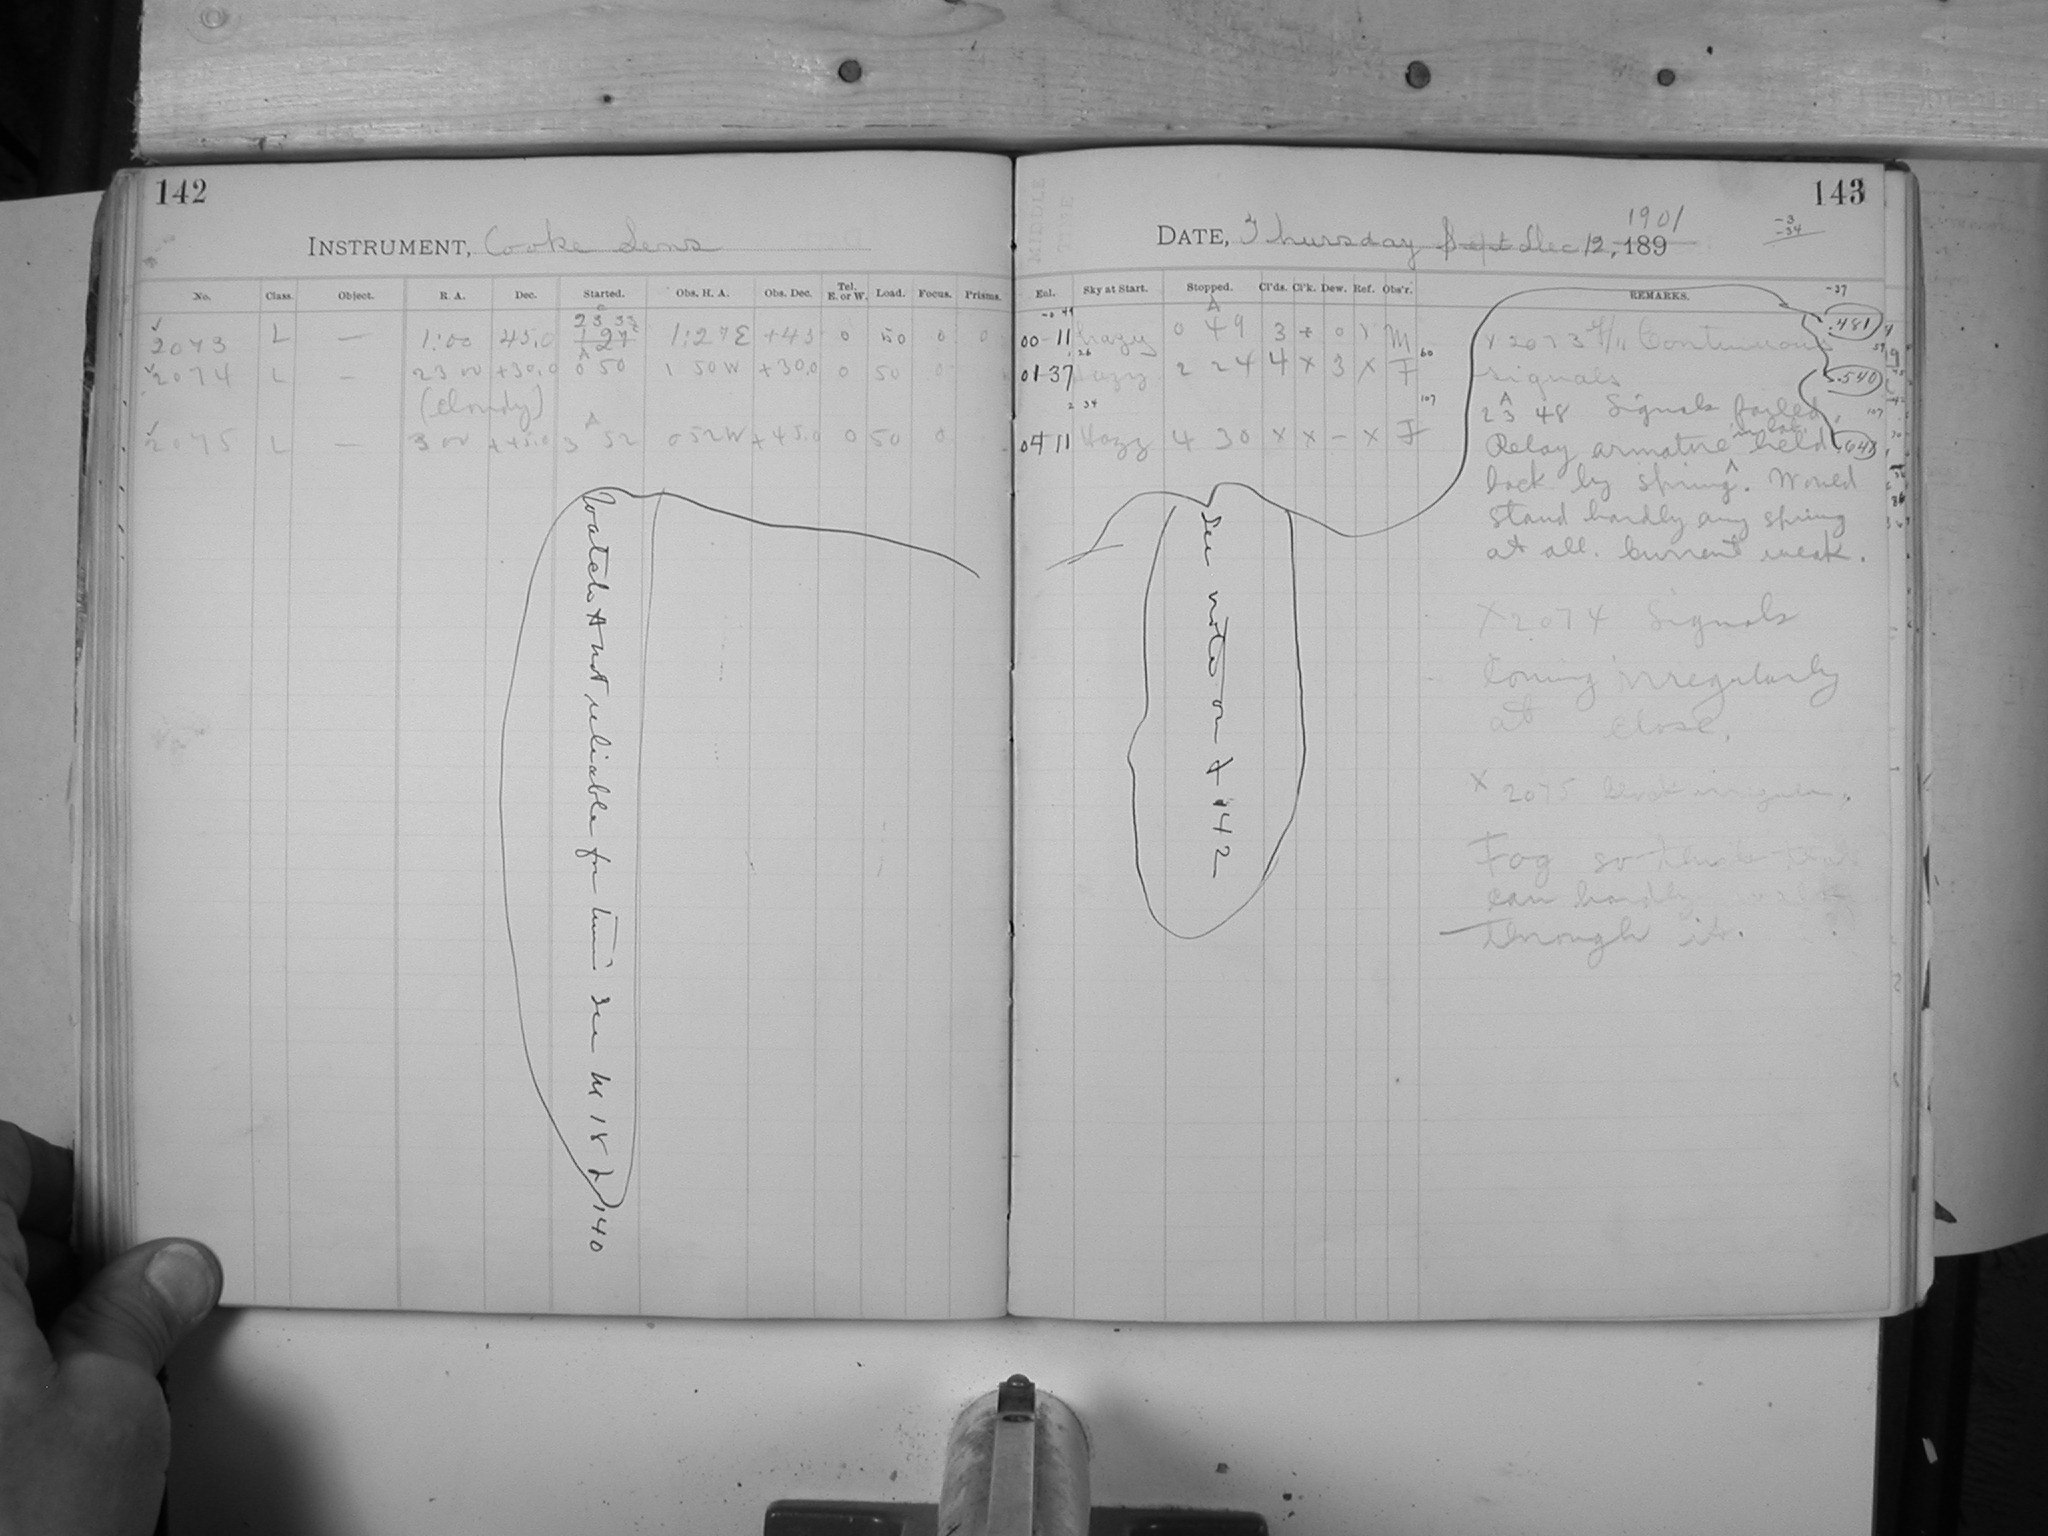 142
INSTRUMENT, Cooke Lens
No. Class. Object. R. A. Dec. Started. Obs. H. A. Obs. Dec. Tel. E. or W. Load. Focus. Prisms.
23 33
2073 L — 1:00 45.0 1 27 1:27E +45 0 50 0 0
2074 L — 23 00 +30.0 0 50 1 50 W +30.0 0 50 0
(cloudy)
2075 L — 3 00 +45.0 3 52 0 52 W +45.0 0 50 0
Watch A not reliable for time see H 18 140
143
1901
DATE, Thursday Sept Dec 12, 189
-3
-34
Eol. Sky at Start. Stopped. Cl'ds. Cl'k. Dew. Ref. Obs'r. REMARKS.
-37
00-11 hazy 0 49 3 + 0 M
01-37 Hazy 2 24 4 x 3 x F
04 11 Hazy 4 30 x x - x F
See note on 142
.481
.540
x 2073 Continuous
signals
A
23 48 Signals failed,
Relay armature held
back by spring. Would
stand hardly any spring
at all. Current weak.
X 2074 Signals
Coming irregularly
at close.
x 2075 irregular.
Fog so thick that
can hardly
through it.